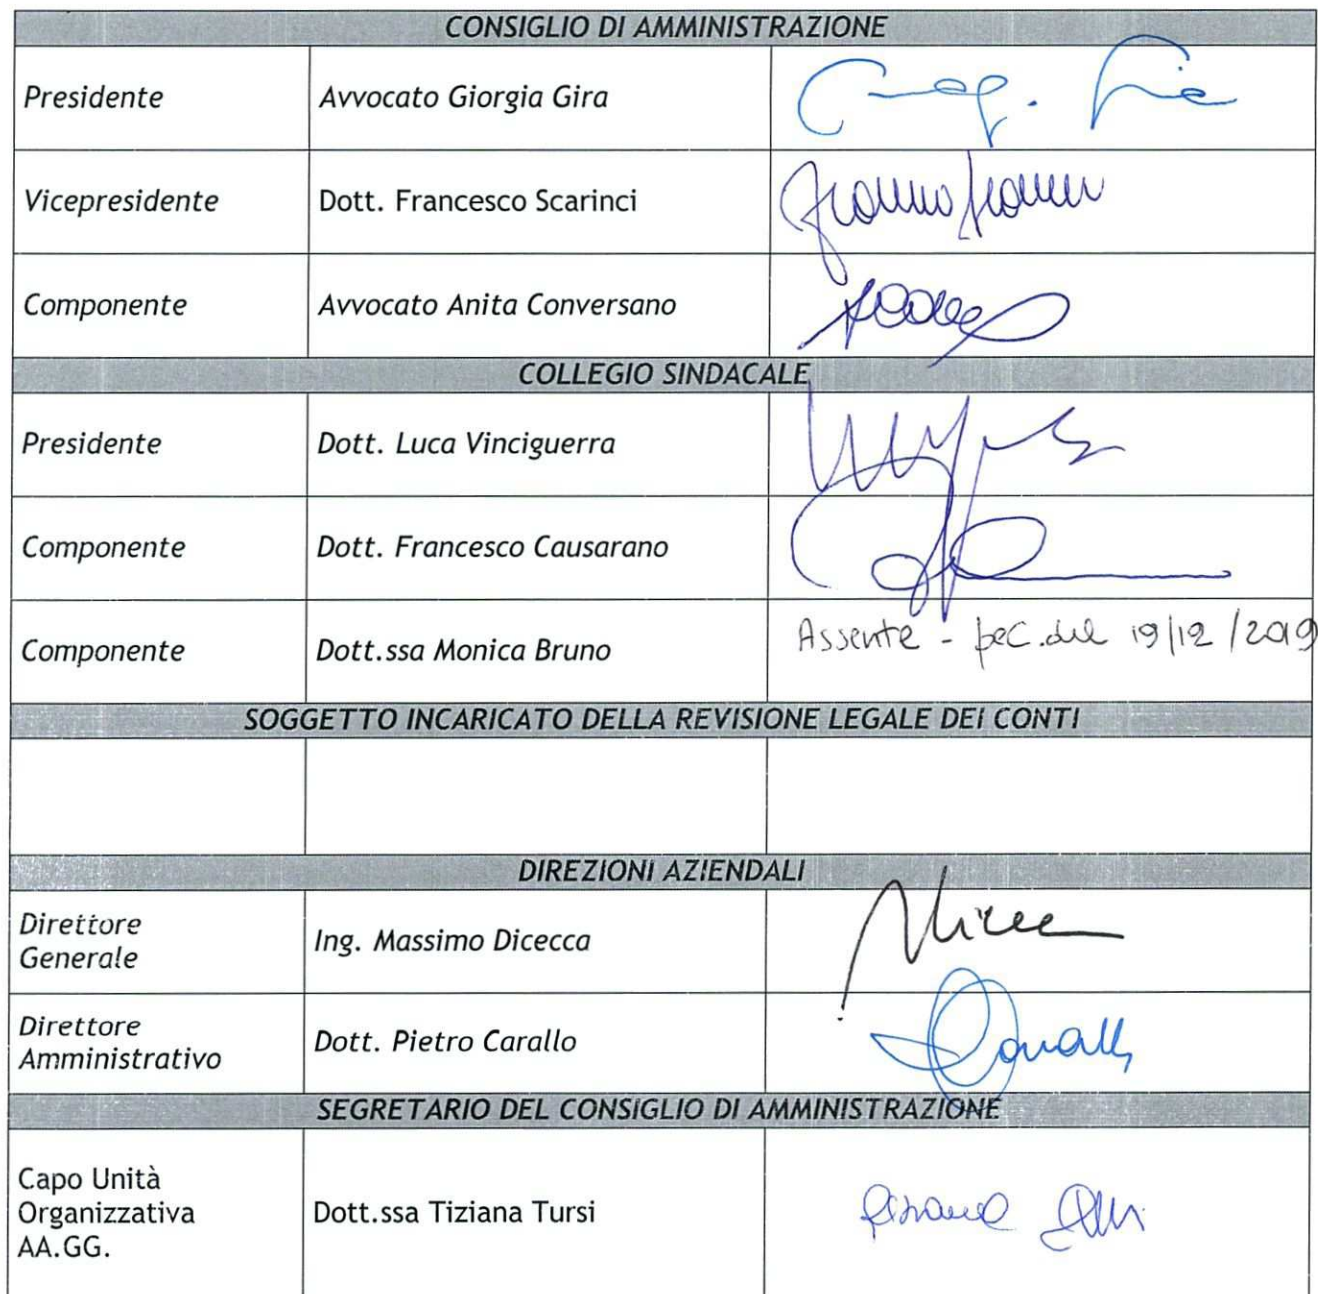 CONSIGLIO DI AMMINISTRAZIONE
Presidente Avvocato Giorgia Gira
Vicepresidente Dott. Francesco Scarinci
Componente Avvocato Anita Conversano
COLLEGIO SINDACALE
Presidente Dott. Luca Vinciguerra
Componente Dott. Francesco Causarano
Componente Dott.ssa Monica Bruno Assente - pec.del 19/12/2019
SOGGETTO INCARICATO DELLA REVISIONE LEGALE DEI CONTI
DIREZIONI AZIENDALI
Direttore
Generale
Ing. Massimo Dicecca
Direttore
Amministrativo
Dott. Pietro Carallo
SEGRETARIO DEL CONSIGLIO DI AMMINISTRAZIONE
Capo Unità
Organizzativa
AA.GG.
Dott.ssa Tiziana Tursi